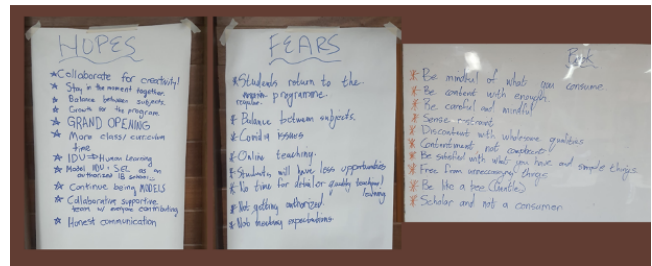 HOPES
Collaborate for creativity!
Stay in the moment together.
Balance between subjects.
Growth for the program
GRAND OPENING
More class/curriculum
time
IDU → Human Learning
Model IDU + SEL as an
authorized IB school...
Continue being MODELS
Collaborative supportive
team w/ everyone contributing
Honest communication
FEARS
Students return to the
regular programme.
Balance between subjects.
Covid issues
Online teaching.
Students will have less opportunities
No time for detail or quality teaching/
learning
Not getting authorized.
Not reaching expectations
Be mindful of what you consume.
Be content with enough.
Be careful and mindful
Sense restraint
Discontent with wholesome qualities
Contentment, not complacent
Be satisfied with what you have and simple things.
Free from unnecessary things.
Be like a bee (gentle)
Scholar and not a consumer.